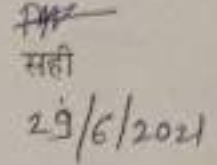 सही
29/6/2021